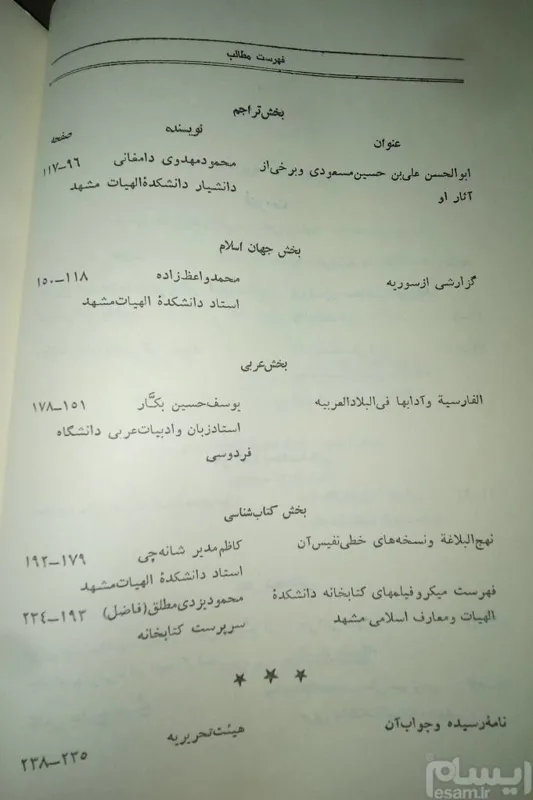 فهرست مطالب
بخش تراجم
عنوان نویسنده صفحه
ابوالحسن علی‌بن حسین مسعودی و برخی از محمود مهدوی دامغانی ۹۶–۱۱۷
آثار او دانشیار دانشکدهٔ الهیات مشهد
بخش جهان اسلام
گزارشی از سوریه محمد واعظ‌زاده ۱۱۸–۱۵۰
استاد دانشکدهٔ الهیات مشهد
بخش عربی
الفارسیة وآدابها فی البلاد العربیه یوسف حسین بکّار ۱۵۱–۱۷۸
استاد زبان و ادبیات عربی دانشگاه
فردوسی
بخش کتاب‌شناسی
نهج‌البلاغة و نسخه‌های خطی نفیس آن کاظم مدیر شانه‌چی ۱۷۹–۱۹۲
استاد دانشکدهٔ الهیات مشهد
فهرست میکروفیلمهای کتابخانه دانشکدهٔ محمود یزدی مطلق (فاضل) ۱۹۳–۲۳۴
الهیات و معارف اسلامی مشهد سرپرست کتابخانه
نامهٔ رسیده و جواب آن هیئت تحریریه ۲۳۵–۲۳۸
ایسام
esam.ir